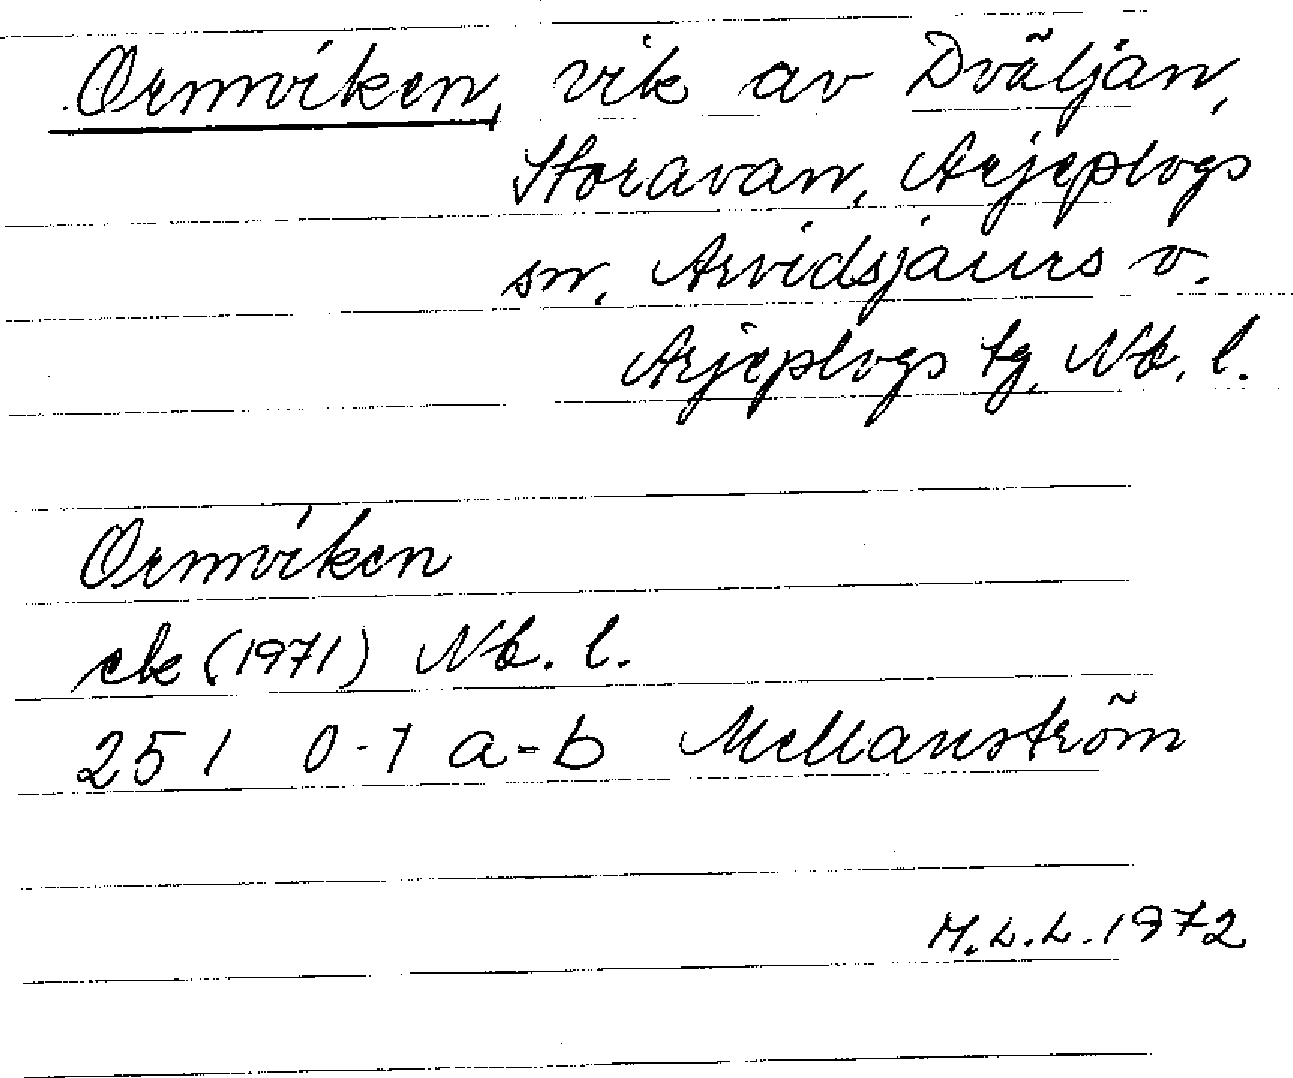 Ormviken, vik av Dväljan,
Storavan, Arjeplogs
sn, Arvidsjaurs o.
Arjeplogs tg, Nb. l.
Ormviken
ek (1971) Nb. l.
251 0-1 a-b Mellanström
M.L.L. 1972